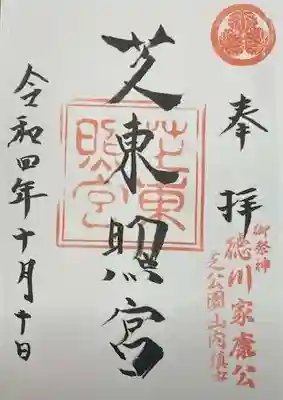 奉拝
御祭神
徳川家康公
芝公園山内鎮座
芝東照宮
芝東照宮
令和四年十月十日